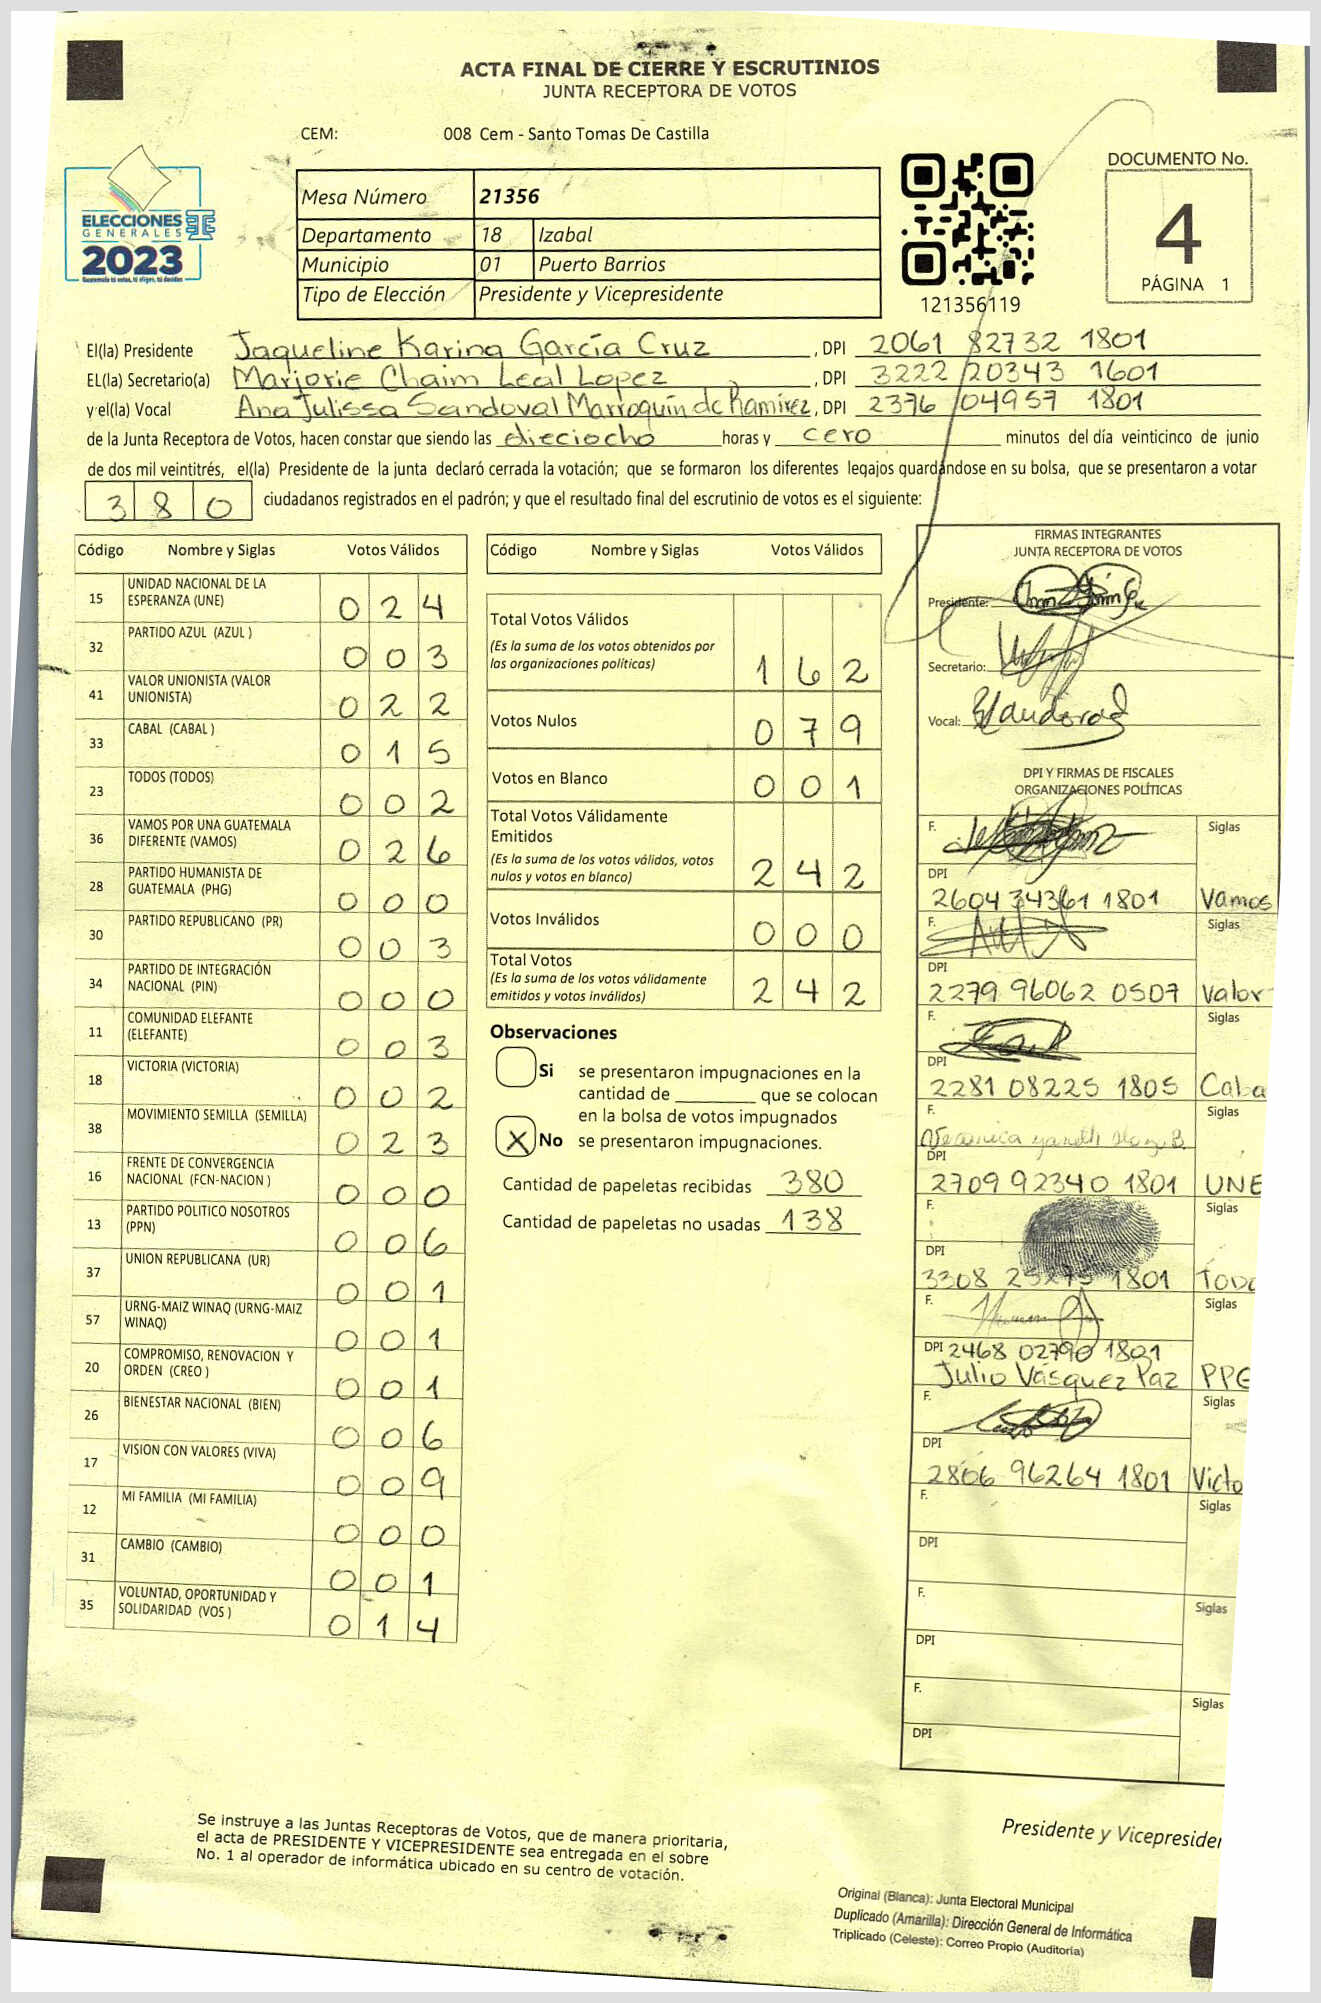 ACTA FINAL DE CIERRE Y ESCRUTINIOS
JUNTA RECEPTORA DE VOTOS
CEM: 008 Cem - Santo Tomas De Castilla
ELECCIONES
GENERALES
2023
Guatemala tú votas, tú eliges, tú decides
Mesa Número 21356
Departamento 18 Izabal
Municipio 01 Puerto Barrios
Tipo de Elección Presidente y Vicepresidente
121356119
DOCUMENTO No.
4
PÁGINA 1
El(la) Presidente Jaqueline Karina García Cruz, DPI 2061 82732 1801
EL(la) Secretario(a) Marjorie Chaim Leal Lopez, DPI 3222 20343 1601
y el(la) Vocal Ana Julissa Sandoval Marroquín de Ramirez, DPI 2376 04957 1801
de la Junta Receptora de Votos, hacen constar que siendo las dieciocho horas y cero minutos del día veinticinco de junio
de dos mil veintitrés, el(la) Presidente de la junta declaró cerrada la votación; que se formaron los diferentes legajos guardándose en su bolsa, que se presentaron a votar
380 ciudadanos registrados en el padrón; y que el resultado final del escrutinio de votos es el siguiente:
Código Nombre y Siglas Votos Válidos
15 UNIDAD NACIONAL DE LA ESPERANZA (UNE) 024
32 PARTIDO AZUL (AZUL ) 003
41 VALOR UNIONISTA (VALOR UNIONISTA) 022
33 CABAL (CABAL ) 015
23 TODOS (TODOS) 002
36 VAMOS POR UNA GUATEMALA DIFERENTE (VAMOS) 026
28 PARTIDO HUMANISTA DE GUATEMALA (PHG) 000
30 PARTIDO REPUBLICANO (PR) 003
34 PARTIDO DE INTEGRACIÓN NACIONAL (PIN) 000
11 COMUNIDAD ELEFANTE (ELEFANTE) 003
18 VICTORIA (VICTORIA) 002
38 MOVIMIENTO SEMILLA (SEMILLA) 023
16 FRENTE DE CONVERGENCIA NACIONAL (FCN-NACION ) 000
13 PARTIDO POLITICO NOSOTROS (PPN) 006
37 UNION REPUBLICANA (UR) 001
57 URNG-MAIZ WINAQ (URNG-MAIZ WINAQ) 001
20 COMPROMISO, RENOVACION Y ORDEN (CREO ) 001
26 BIENESTAR NACIONAL (BIEN) 006
17 VISION CON VALORES (VIVA) 009
12 MI FAMILIA (MI FAMILIA) 000
31 CAMBIO (CAMBIO) 001
35 VOLUNTAD, OPORTUNIDAD Y SOLIDARIDAD (VOS ) 014
Código Nombre y Siglas Votos Válidos
Total Votos Válidos
(Es la suma de los votos obtenidos por
las organizaciones políticas) 162
Votos Nulos 079
Votos en Blanco 001
Total Votos Válidamente
Emitidos
(Es la suma de los votos válidos, votos
nulos y votos en blanco) 242
Votos Inválidos 000
Total Votos
(Es la suma de los votos válidamente
emitidos y votos inválidos) 242
Observaciones
Si se presentaron impugnaciones en la
cantidad de ________ que se colocan
en la bolsa de votos impugnados
X No se presentaron impugnaciones.
Cantidad de papeletas recibidas 380
Cantidad de papeletas no usadas 138
FIRMAS INTEGRANTES
JUNTA RECEPTORA DE VOTOS
Presidente:
Secretario:
Vocal:
DPI Y FIRMAS DE FISCALES
ORGANIZACIONES POLÍTICAS
F. Siglas
DPI
2604 34361 1801 Vamos
F. Siglas
DPI
2279 96062 0507 Valor
F. Siglas
DPI
2281 08225 1805 Caba
F. Siglas
DPI
2709 92340 1801 UNE
F. Siglas
DPI
3308 1801 Todo
F. Siglas
DPI 2468 02790 1801
Julio Vásquez Paz
F. Siglas
DPI
2806 96264 1801 Victo
F. Siglas
DPI
F. Siglas
DPI
F. Siglas
DPI
Se instruye a las Juntas Receptoras de Votos, que de manera prioritaria,
el acta de PRESIDENTE Y VICEPRESIDENTE sea entregada en el sobre
No. 1 al operador de informática ubicado en su centro de votación.
Presidente y Vicepresiden
Original (Blanca): Junta Electoral Municipal
Duplicado (Amarilla): Dirección General de Informática
Triplicado (Celeste): Correo Propio (Auditoría)